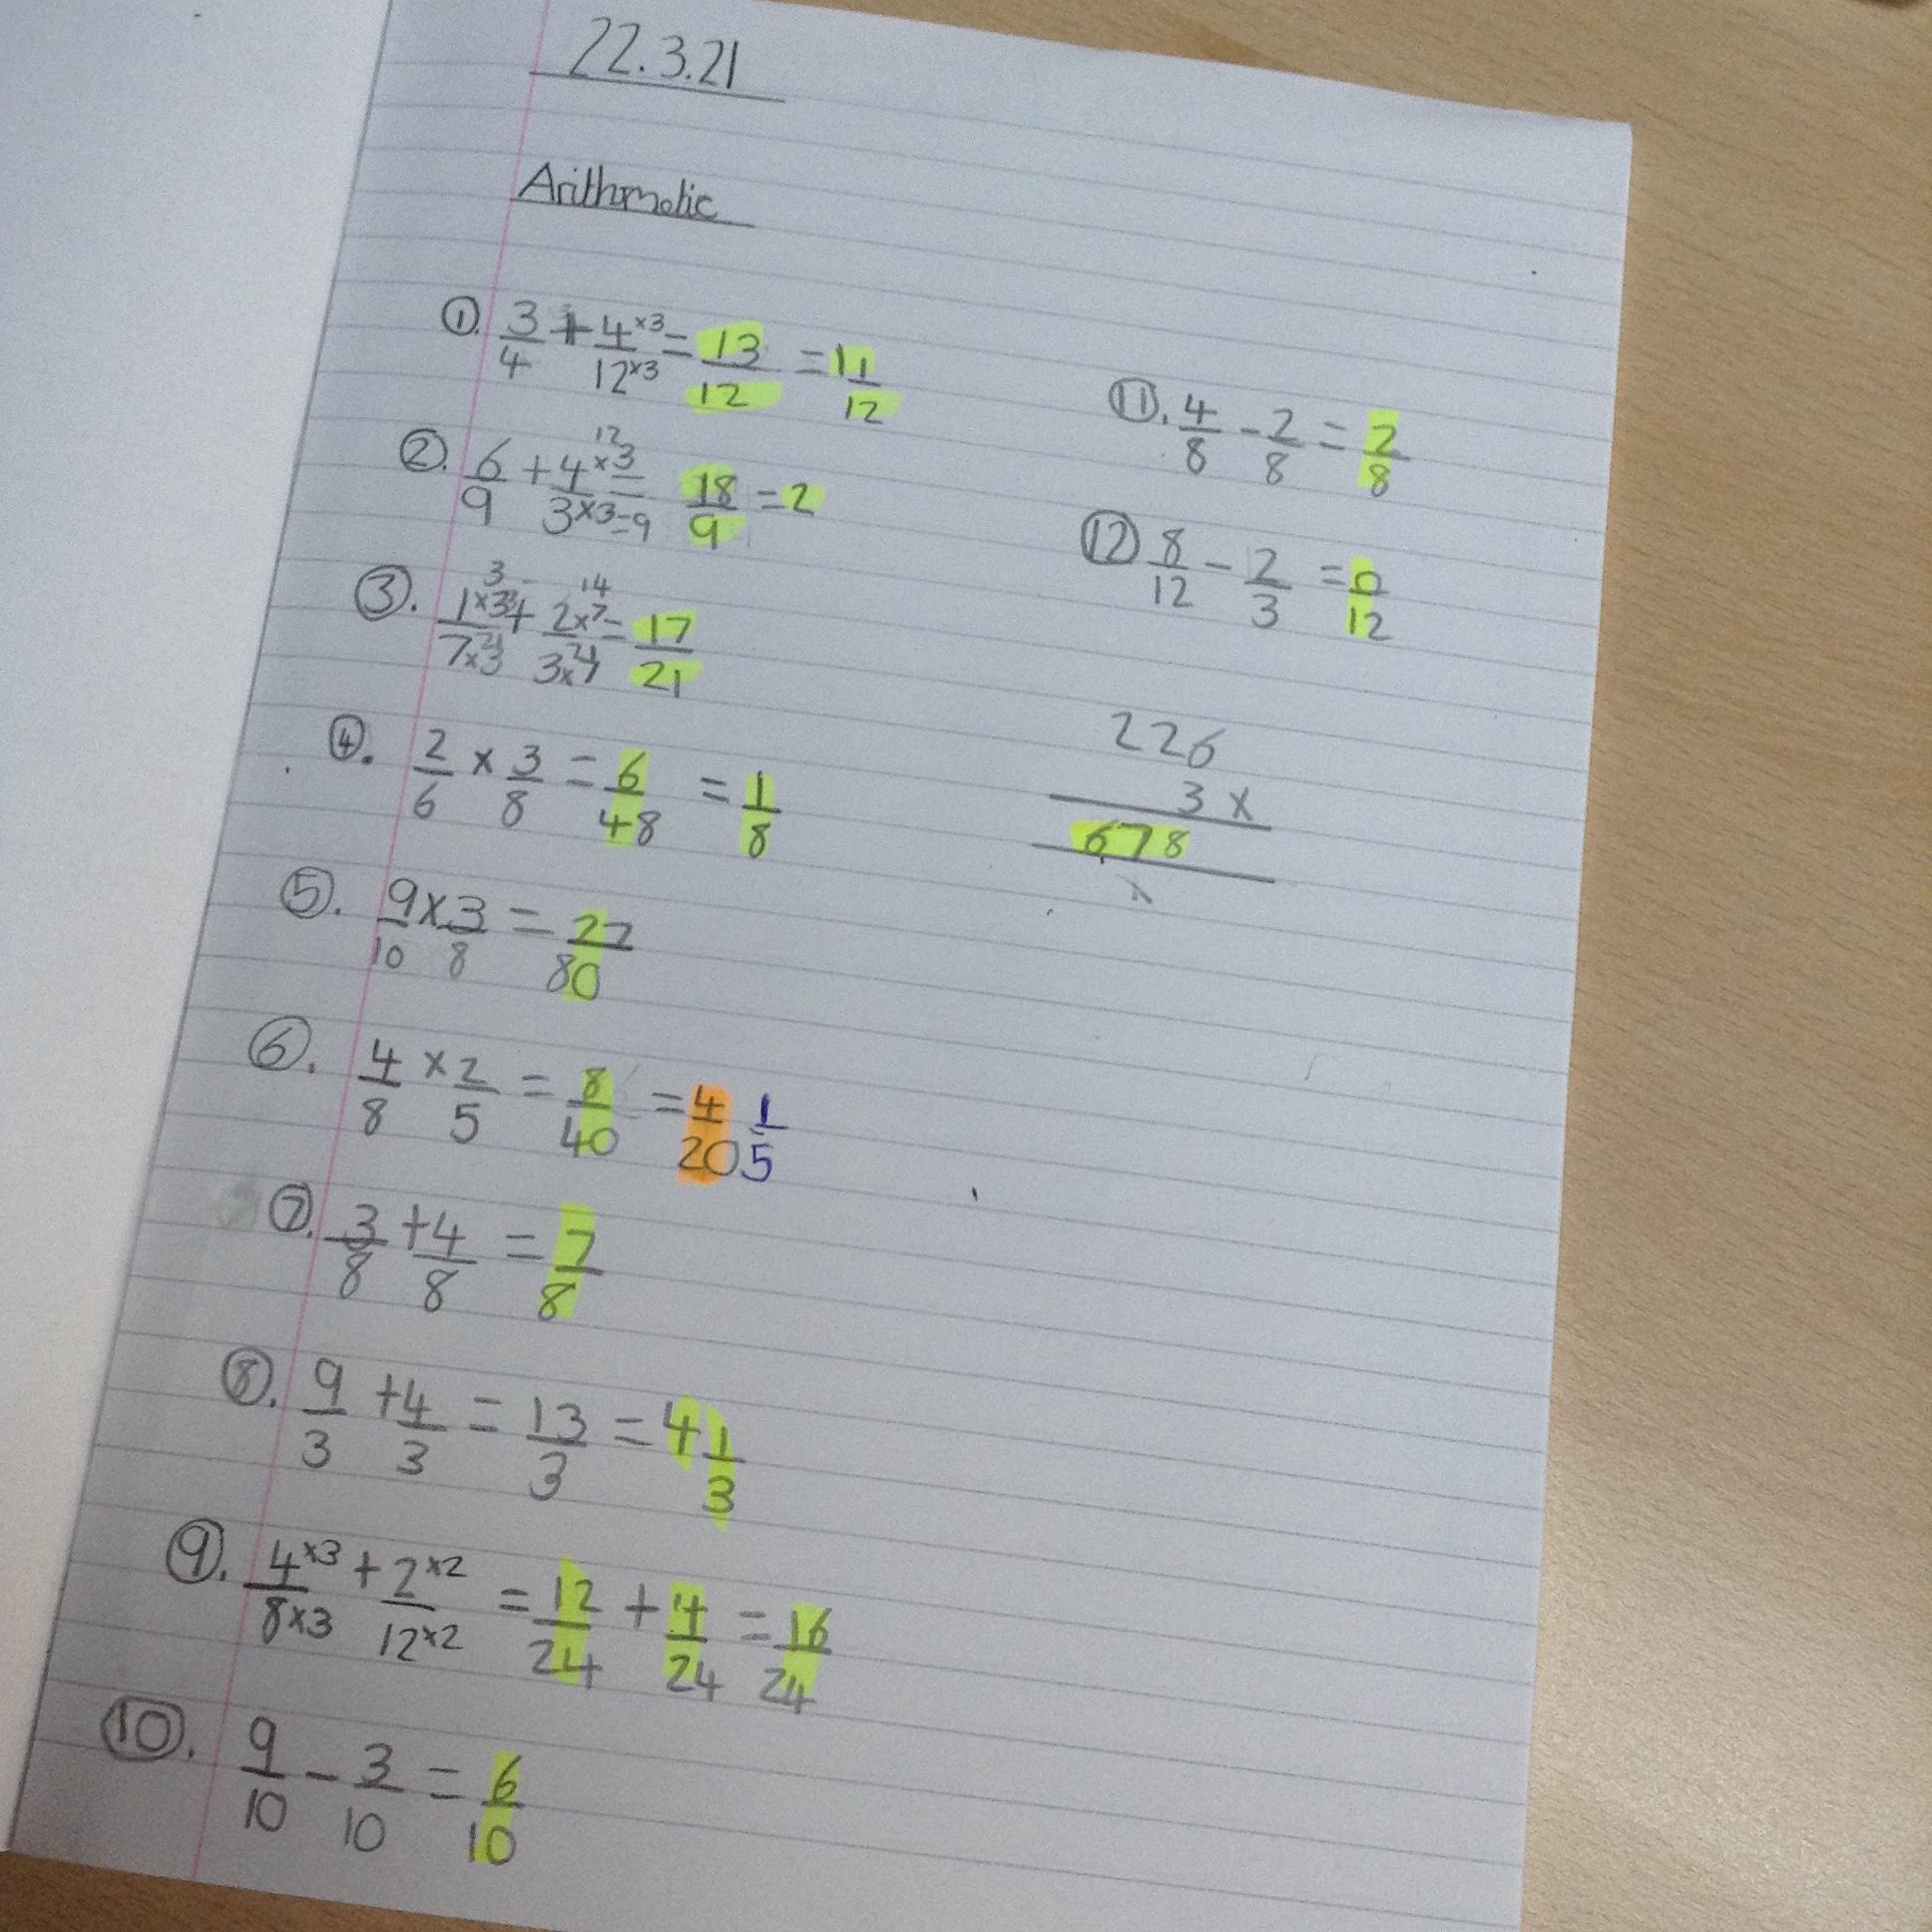 22.3.21
Arithmetic
①. 3/4 + 4/12 ×3 ×3 = 13/12 = 1 1/12
②. 6/9 + 4/3 ×3 12 ×3=9 = 18/9 = 2
③. 1/7 ×3 3 ×3 21 + 2/3 ×7 14 ×7 21 = 17/21
④. 2/6 × 3/8 = 6/48 = 1/8
⑤. 9/10 × 3/8 = 27/80
⑥. 4/8 × 2/5 = 8/40 = 4/20 1/5
⑦. 3/8 + 4/8 = 7/8
⑧. 9/3 + 4/3 = 13/3 = 4 1/3
⑨. 4/8 ×3 ×3 + 2/12 ×2 ×2 = 12/24 + 4/24 = 16/24
⑩. 9/10 - 3/10 = 6/10
⑪. 4/8 - 2/8 = 2/8
⑫ 8/12 - 2/3 = 0/12
226
3 x
678
1